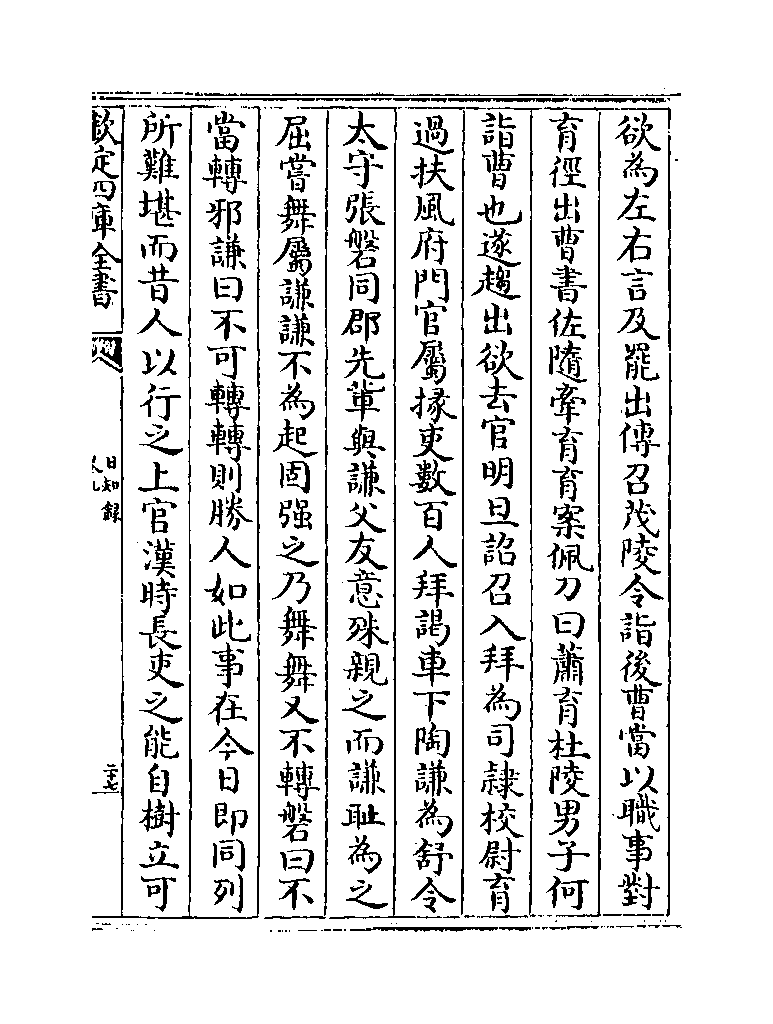 欲為左右言及罷出傳召茂陵令詣後曹當以職事對
育徑出曹書佐隨牽育育案佩刀曰蕭育杜陵男子何
詣曹也遂趨出欲去官明旦詔召入拜為司隸校尉育
過扶風府門官屬掾吏數百人拜謁車下陶謙為舒令
太守張磐同郡先輩與謙父友意殊親之而謙恥為之
屈嘗舞屬謙謙不為起固强之乃舞舞又不轉磐曰不
當轉邪謙曰不可轉轉則勝人如此事在今日即同列
所難堪而昔人以行之上官漢時長吏之能自樹立可
欽定四庫全書
日知録
卷九
二十七